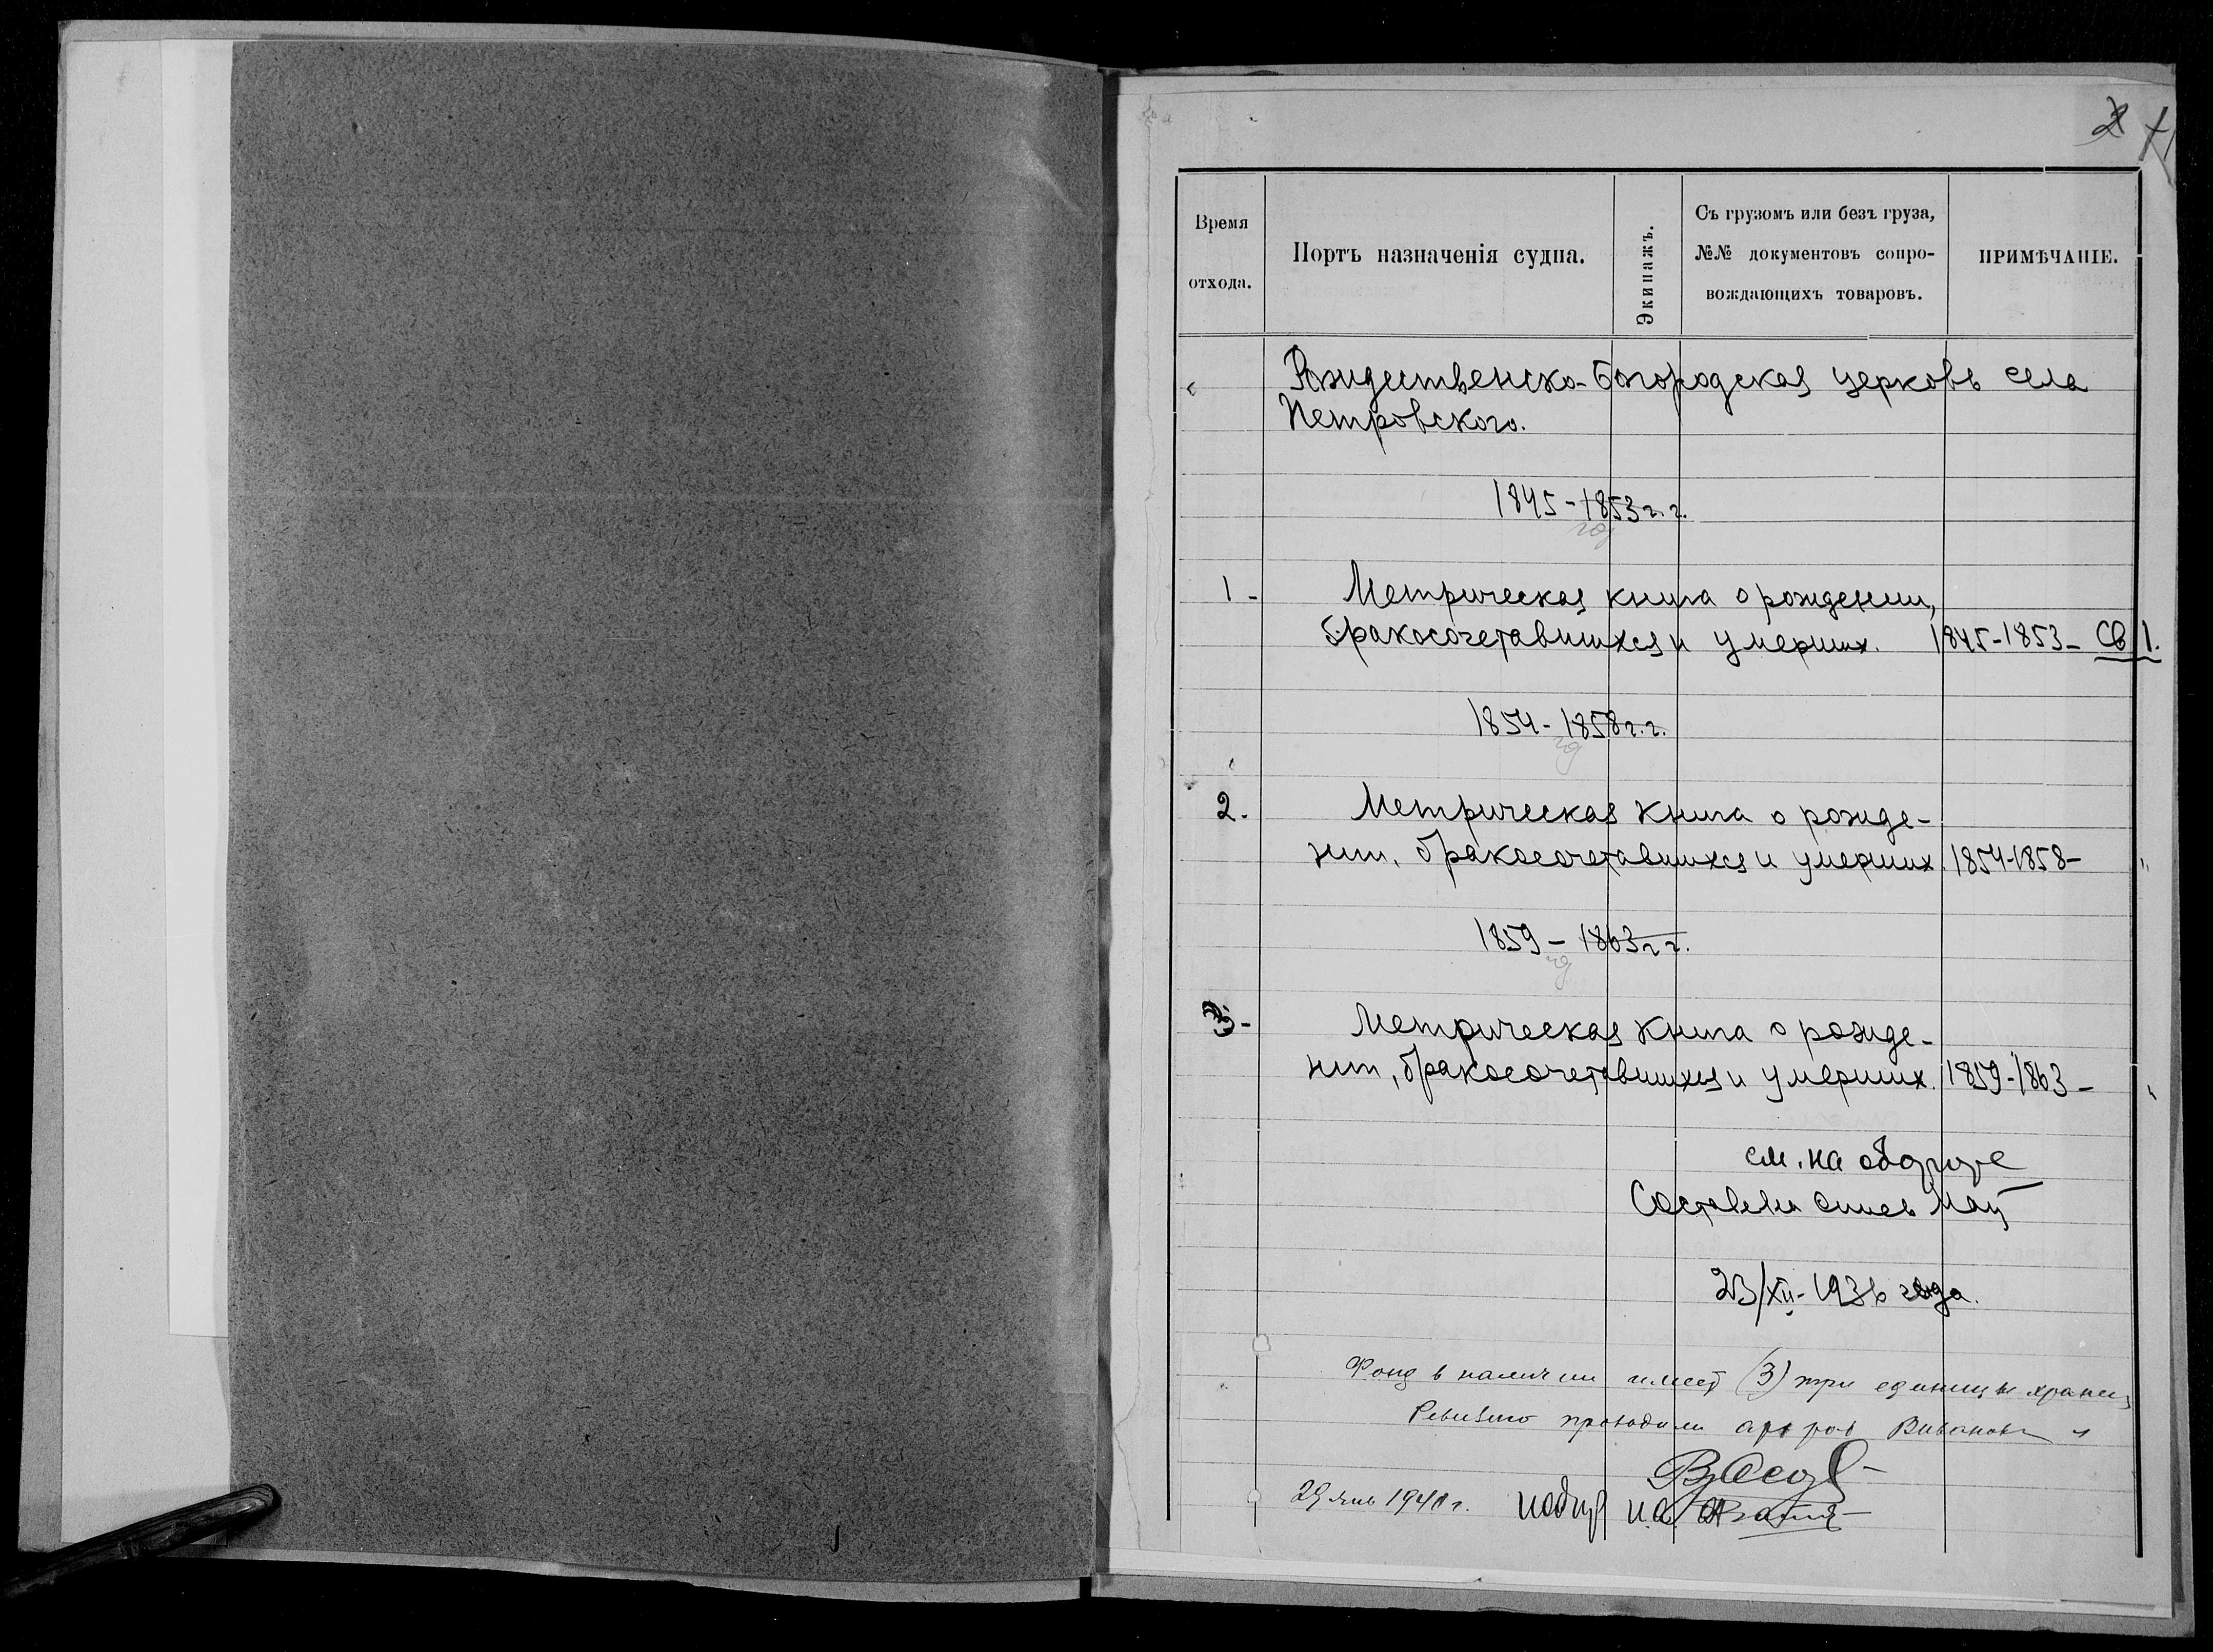 2
Время отхода.
Портъ назначенія судна.
Экипажъ.
Съ грузомъ или безъ груза,
№№ документовъ сопро-
вождающихъ товаровъ.
ПРИМѢЧАНІЕ.
Рождественско-Богородская церковь села
Петровского.
1845-1853 г.г.
1 - Метрическая книга о рождении,
бракосочетавшихся и умерших. 1845-1853- Св 1.
1854-1858 г.г.
2. Метрическая книга о рожде-
нии, бракосочетавшихся и умерших. 1854-1858- "
1859-1863 г.г.
3- Метрическая книга о рожде-
нии, бракосочетавшихся и умерших. 1859-1863- "
см. на обороте
Составлял опись
23/XII-1936 года.
Фонд в наличии имеет (3) три единицы хранен
Ревизию проводили
29 янв 1941 г.